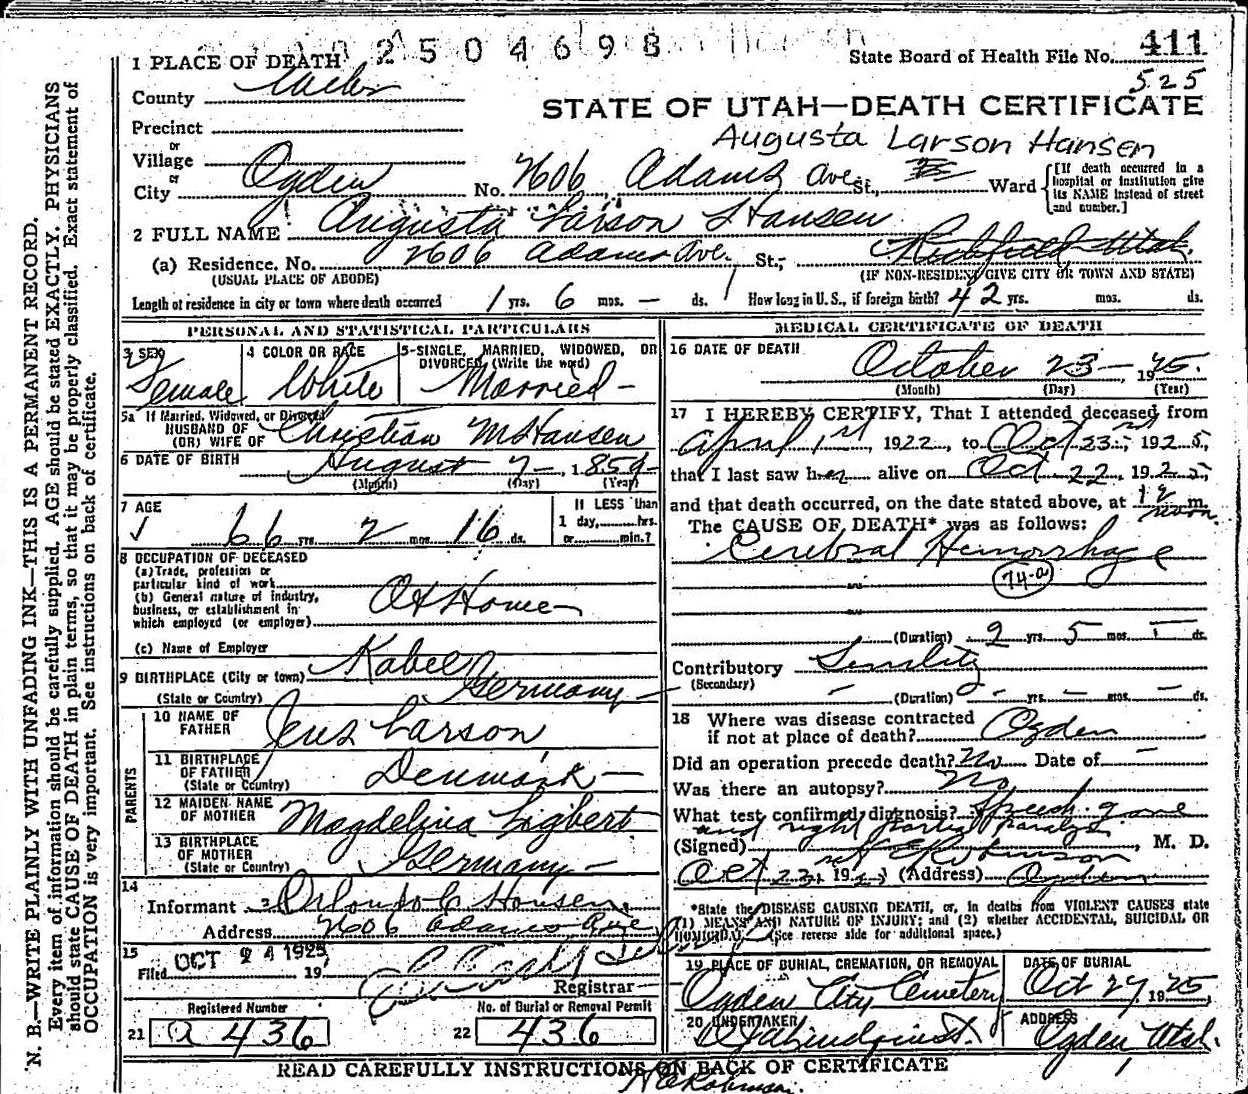 2504698
State Board of Health File No. 411
525
1 PLACE OF DEATH
County Weber
STATE OF UTAH—DEATH CERTIFICATE
Precinct
Augusta Larson Hansen
or
Village
or
City Ogden No. 2606 Adams Ave St., Ward
[If death occurred in a hospital or institution give its NAME instead of street and number.]
2 FULL NAME Augusta Larson Hansen
(a) Residence. No. 2606 Adams Ave. St., Richfield Utah
(USUAL PLACE OF ABODE) (IF NON-RESIDENT GIVE CITY OR TOWN AND STATE)
Length of residence in city or town where death occurred 1 yrs. 6 mos. — ds. How long in U. S., if foreign birth? 42 yrs. mos. ds.
PERSONAL AND STATISTICAL PARTICULARS
3 SEX Female
4 COLOR OR RACE White
5-SINGLE, MARRIED, WIDOWED, OR DIVORCED, (Write the word) Married —
5a If Married, Widowed, or Divorced
HUSBAND OF
(OR) WIFE OF Christian M Hansen
6 DATE OF BIRTH August 7 — 1859
(Month) (Day) (Year)
7 AGE 66 yrs. 2 mos. 16 ds.
If LESS than
1 day, hrs.
or min.?
8 OCCUPATION OF DECEASED
(a) Trade, profession or
particular kind of work
(b) General nature of industry,
business, or establishment in
which employed (or employer) At Home
(c) Name of Employer
9 BIRTHPLACE (City or town) Kabel
(State or Country) Germany —
PARENTS
10 NAME OF FATHER Jens Larson
11 BIRTHPLACE OF FATHER (State or Country) Denmark —
12 MAIDEN NAME OF MOTHER Magdelina Ligbert
13 BIRTHPLACE OF MOTHER (State or Country) Germany —
14
Informant Orlando C Hansen
Address 2606 Adams Ave
15
Filed OCT 24 1925, 19
Registrar
Registered Number
21 a 436
No. of Burial or Removal Permit
22 436
MEDICAL CERTIFICATE OF DEATH
16 DATE OF DEATH October 23 — 1925.
(Month) (Day) (Year)
17 I HEREBY CERTIFY, That I attended deceased from
April 1st, 1922, to Oct 23rd, 1925,
that I last saw her alive on Oct 22, 1925
and that death occurred, on the date stated above, at 12 noon m.
The CAUSE OF DEATH* was as follows:
Cerebral Hemorrhage
74-a
(Duration) 2 yrs. 5 mos. — ds.
Contributory Senility
(Secondary)
(Duration) — yrs. — mos. — ds.
18 Where was disease contracted
if not at place of death? Ogden
Did an operation precede death? No Date of —
Was there an autopsy? No
What test confirmed diagnosis? Speech gone
and right partial paralysis
(Signed) H E Robinson, M. D.
Oct 23, 192 (Address) Ogden
*State the DISEASE CAUSING DEATH, or, in deaths from VIOLENT CAUSES state
(1) MEANS AND NATURE OF INJURY; and (2) whether ACCIDENTAL, SUICIDAL OR
HOMICIDAL. (See reverse side for additional space.)
19 PLACE OF BURIAL, CREMATION, OR REMOVAL
Ogden City Cemetery
DATE OF BURIAL
Oct 27, 1925
20 UNDERTAKER
Lindquist.
ADDRESS
Ogden Utah.
READ CAREFULLY INSTRUCTIONS ON BACK OF CERTIFICATE
H E Robinson.
N. B.—WRITE PLAINLY WITH UNFADING INK—THIS IS A PERMANENT RECORD.
Every item of information should be carefully supplied. AGE should be stated EXACTLY. PHYSICIANS
should state CAUSE OF DEATH in plain terms, so that it may be properly classified. Exact statement of
OCCUPATION is very important. See instructions on back of certificate.